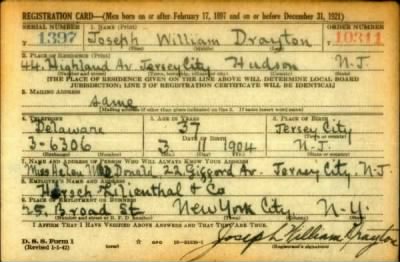 REGISTRATION CARD—(Men born on or after February 17, 1897 and on or before December 31, 1921)
SERIAL NUMBER 1. NAME (Print) ORDER NUMBER
1397 Joseph William Drayton 10311
(First) (Middle) (Last)
2. PLACE OF RESIDENCE (Print)
44 Highland Av. Jersey City Hudson N-J.
(Number and street) (Town, township, village, or city) (County) (State)
[THE PLACE OF RESIDENCE GIVEN ON THE LINE ABOVE WILL DETERMINE LOCAL BOARD
JURISDICTION; LINE 2 OF REGISTRATION CERTIFICATE WILL BE IDENTICAL]
3. MAILING ADDRESS
same
[Mailing address if other than place indicated on line 2. If same insert word same]
4. TELEPHONE 5. AGE IN YEARS 6. PLACE OF BIRTH
Delaware 37 Jersey City
DATE OF BIRTH
3-6306 3 11 1904 N-J.
7. NAME AND ADDRESS OF PERSON WHO WILL ALWAYS KNOW YOUR ADDRESS
Miss Helen McDonald, 22 Giffard Av. Jersey City, N-J.
8. EMPLOYER'S NAME AND ADDRESS
Hirsch Lilienthal & Co
9. PLACE OF EMPLOYMENT OR BUSINESS
25 Broad St New York City N-Y.
(Number and street or R. F. D. number) (Town) (County) (State)
I AFFIRM THAT I HAVE VERIFIED ABOVE ANSWERS AND THAT THEY ARE TRUE.
D. S. S. Form 1
(Revised 1-1-42) GPO Joseph William Drayton
(Registrant's signature)